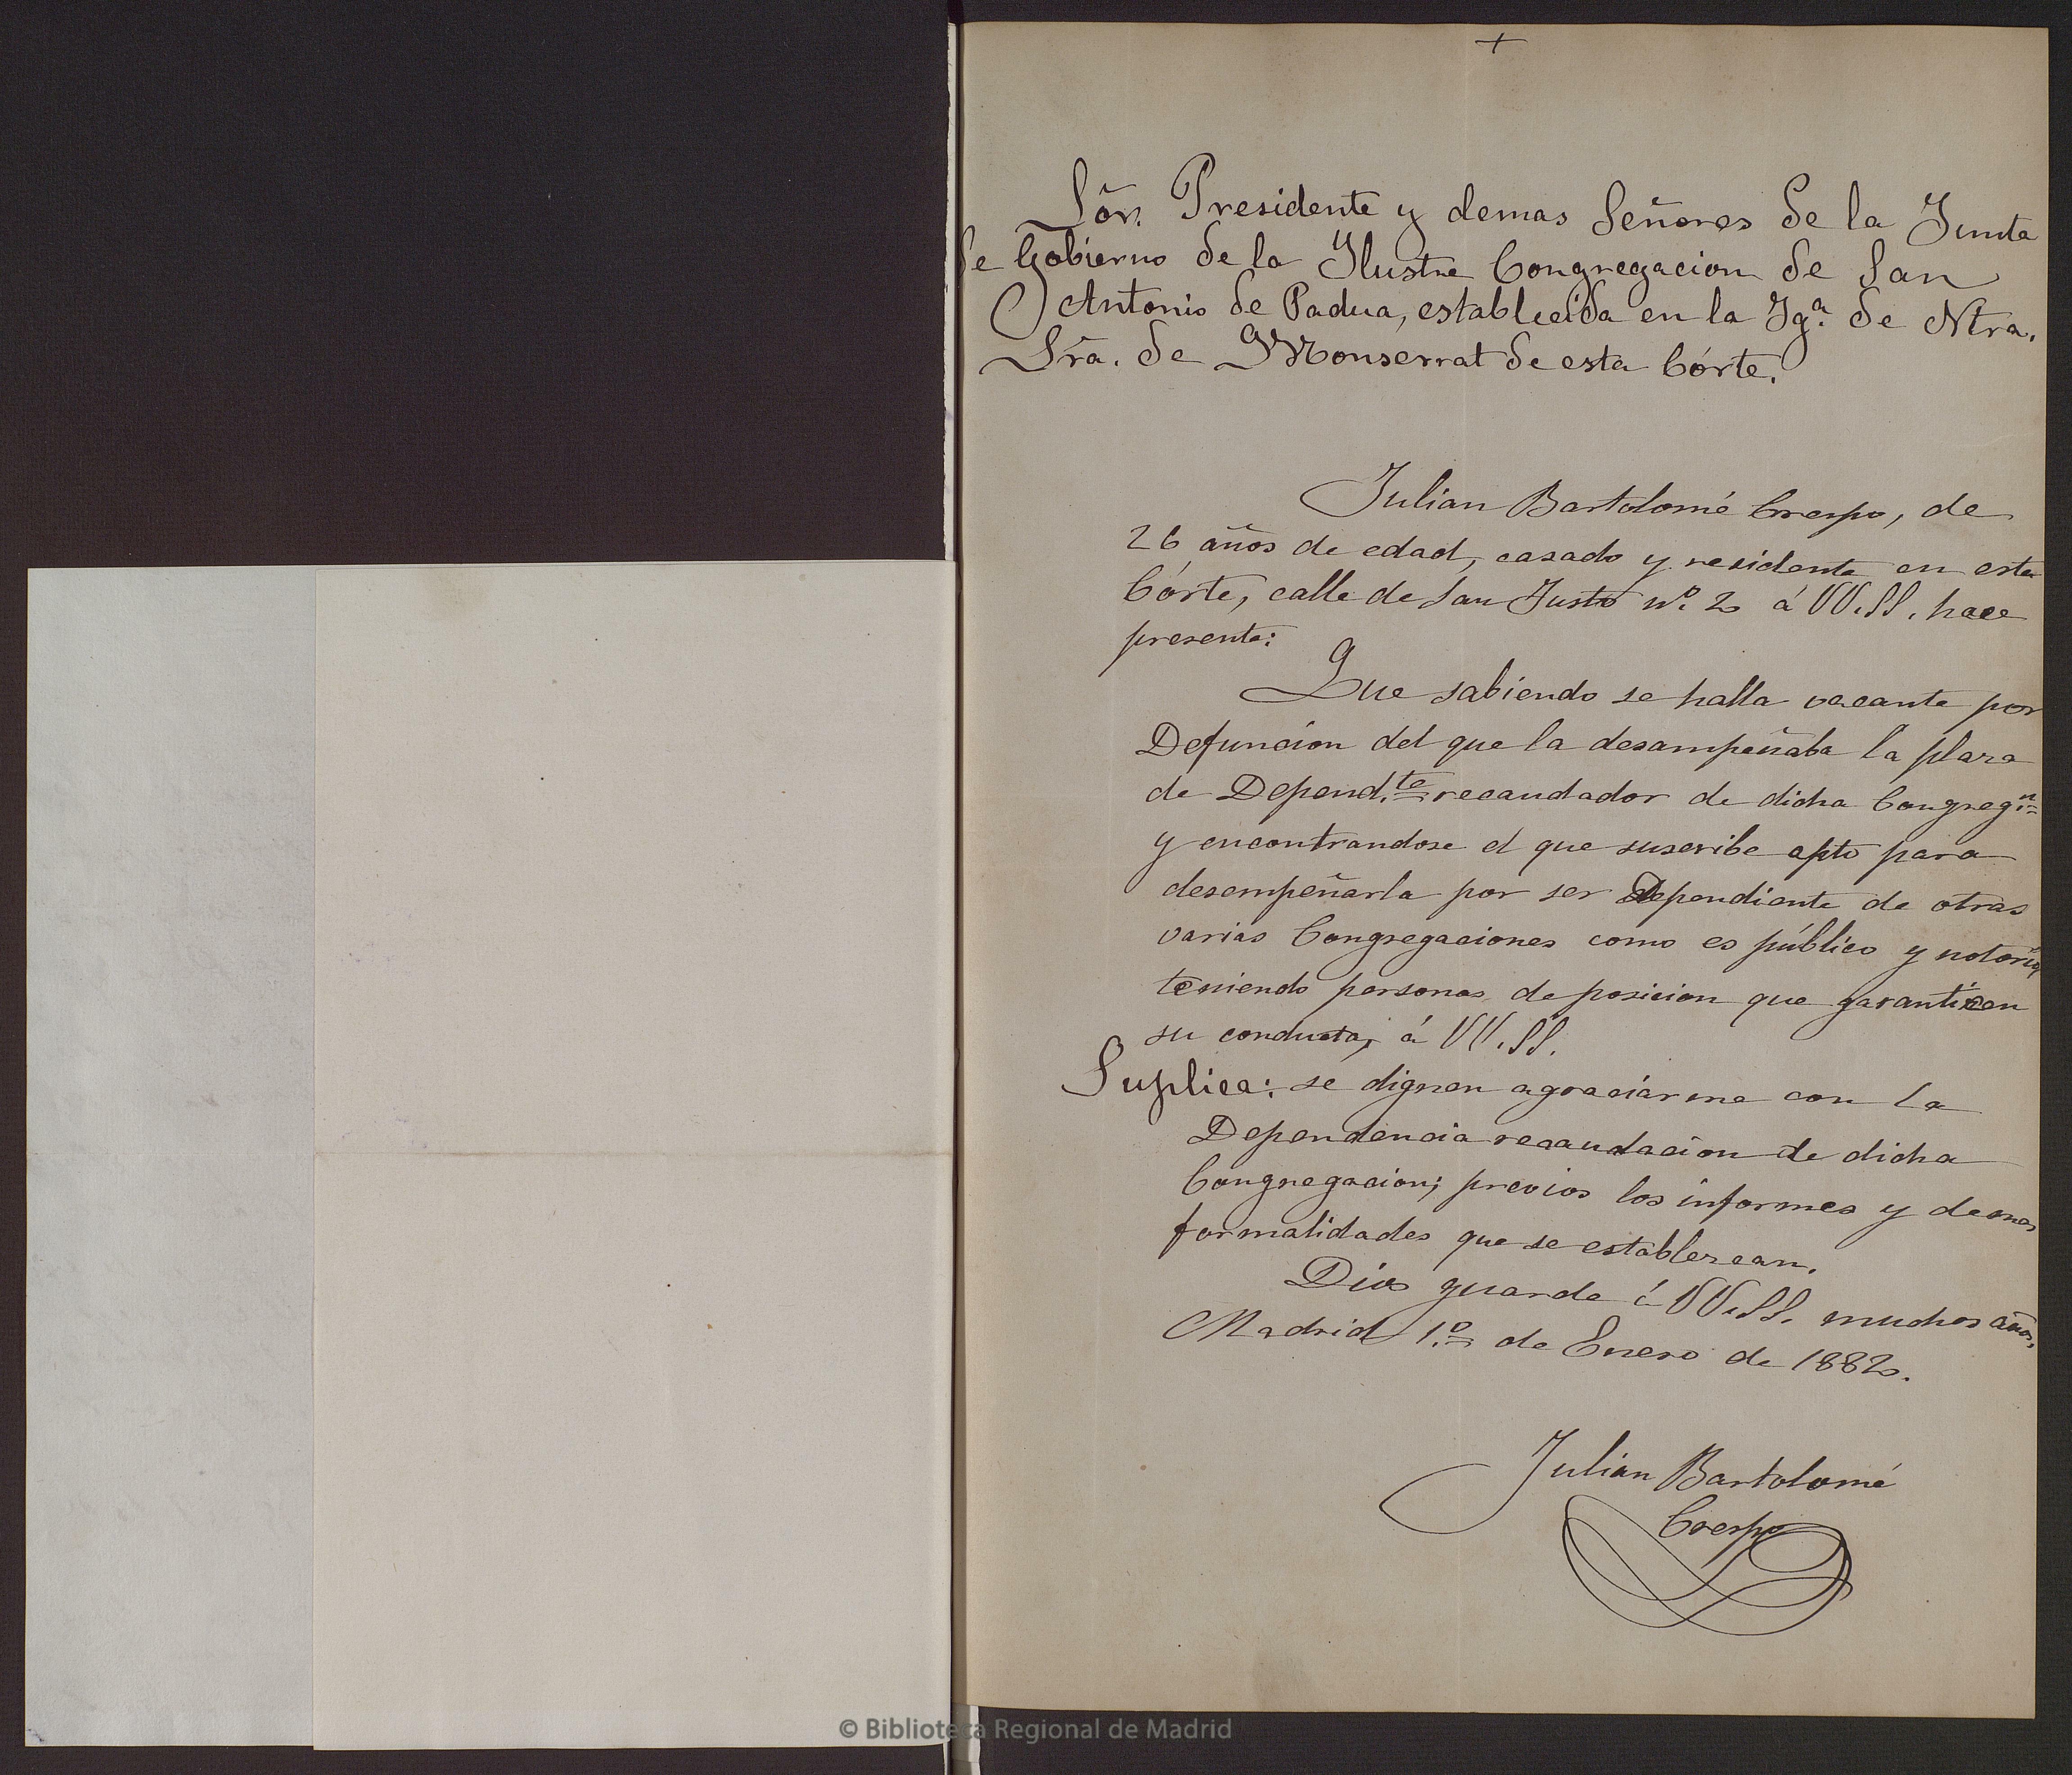 +
Sõr. Presidente y demas Señores de la Junta
de Gobierno de la Ilustre Congregacion de San
Antonio de Padua, establecida en la Yg.ª de Ntra.
Sra. de Monserrat de esta Córte.
Julian Bartolomé Crespo, de
26 años de edad, casado y residente en esta
Córte, calle de San Justo nº. 2 á VV.SS. hace
presente:
Que sabiendo se halla vacante por
Defuncion del que la desempeñaba la plaza
de Depend.te recaudador de dicha Congregn.
y encontrandose el que suscribe apto para
desempeñarla por ser Dependiente de otras
varias Congregaciones como es público y notorio,
teniendo personas de posicion que garanticen
su conducta, á VV.SS.
Suplica: se dignen agraciarme con la
Dependencia recaudacion de dicha
Congregacion; previos los informes y demas
formalidades que se establezcan.
Dios guarde á VV.SS. muchos años,
Madrid 1.º de Enero de 1882.
Julian Bartolomé
Crespo
© Biblioteca Regional de Madrid